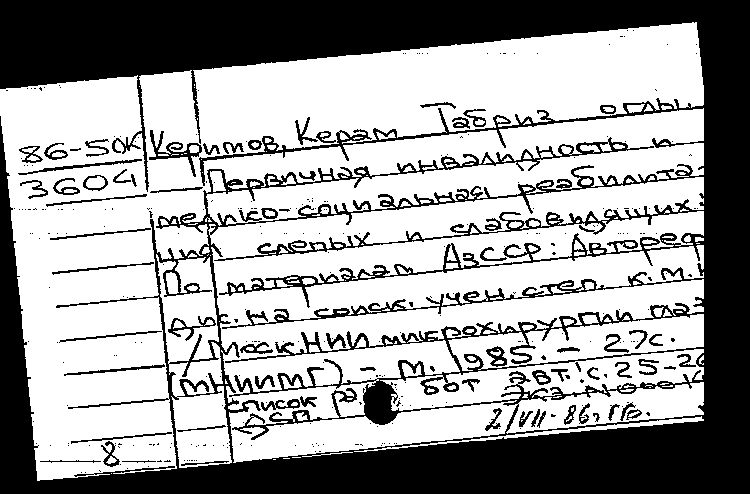 86-50К Керимов, Керам Табриз оглы.
3604 Первичная инвалидность и
медико-социальная реабилита-
ция слепых и слабовидящих:
По материалам АзССР: Автореф
дис. на соиск. учен. степ. к.м.н
/ Моск. НИИ микрохирургии глаз
(МНИИМГ). - М., 1985. - 27с.
список бот авт.: с. 25-26
ДСП. Экз. N
2/VII-86г.
8